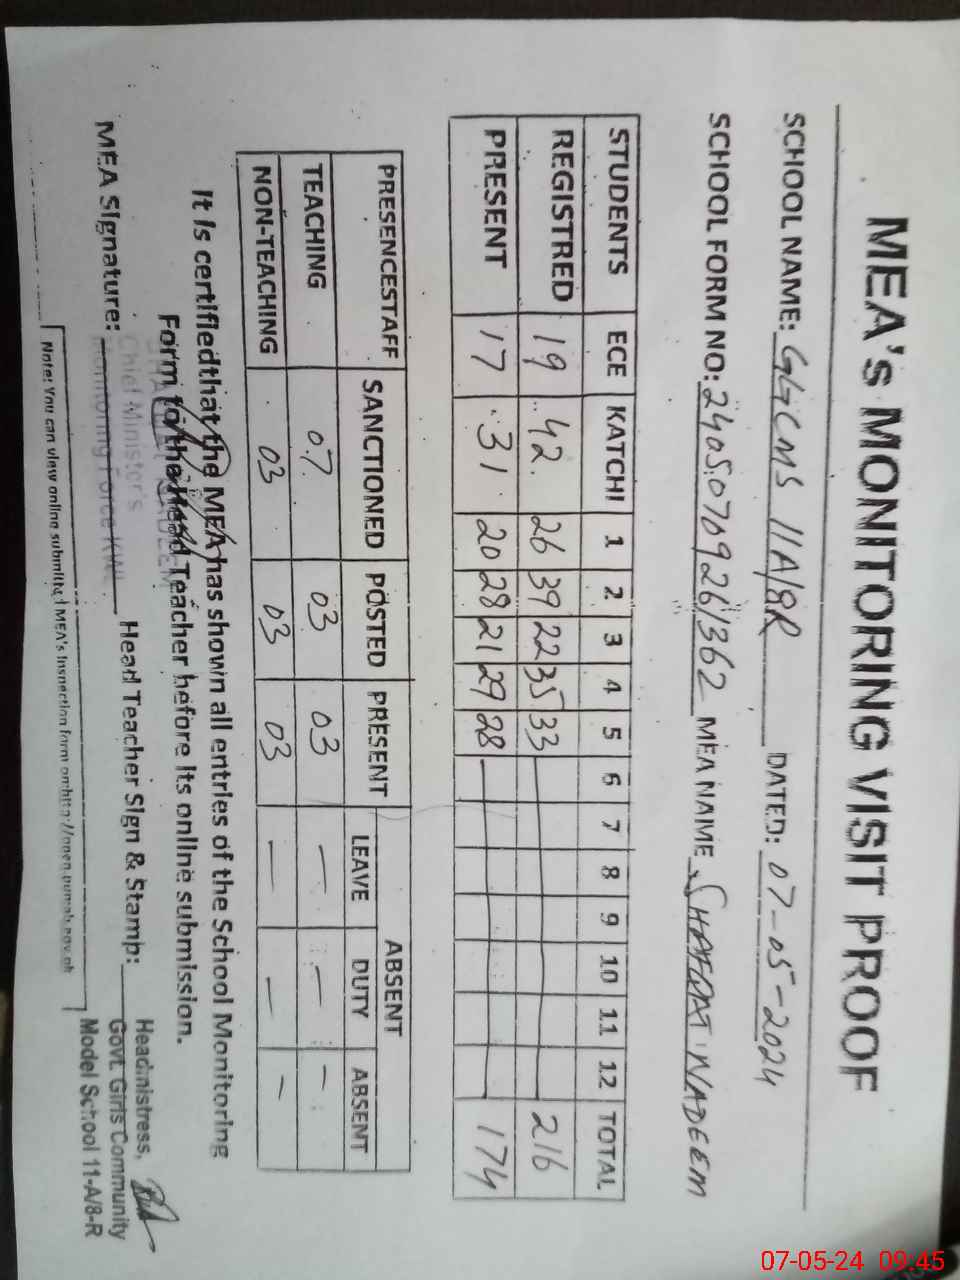 MEA's MONITORING VISIT PROOF
SCHOOL NAME: GGCMS 11A/8R DATED: 07-05-2024
SCHOOL FORM NO: 2405070926/362 MEA NAME SHAFQAT NADEEM
STUDENTS ECE KATCHI 1 2 3 4 5 6 7 8 9 10 11 12 TOTAL
REGISTRED 19 42 26 39 22 35 33 216
PRESENT 17 31 20 28 21 29 28 174
PRESENCESTAFF SANCTIONED POSTED PRESENT ABSENT
LEAVE DUTY ABSENT
TEACHING 07 03 03 — — —
NON-TEACHING 03 03 03 — — —
It is certifiedthat the MEA has shown all entries of the School Monitoring
Form to the Head Teacher before its online submission.
NADEEM
Chief Minister's
Monitoring Force KWL
MEA Signature: Head Teacher Sign & Stamp:
Headmistress,
Govt. Girls Community
Model School 11-A/8-R
Note: You can view online submitted MEA's Inspection form on:
07-05-24 09:45